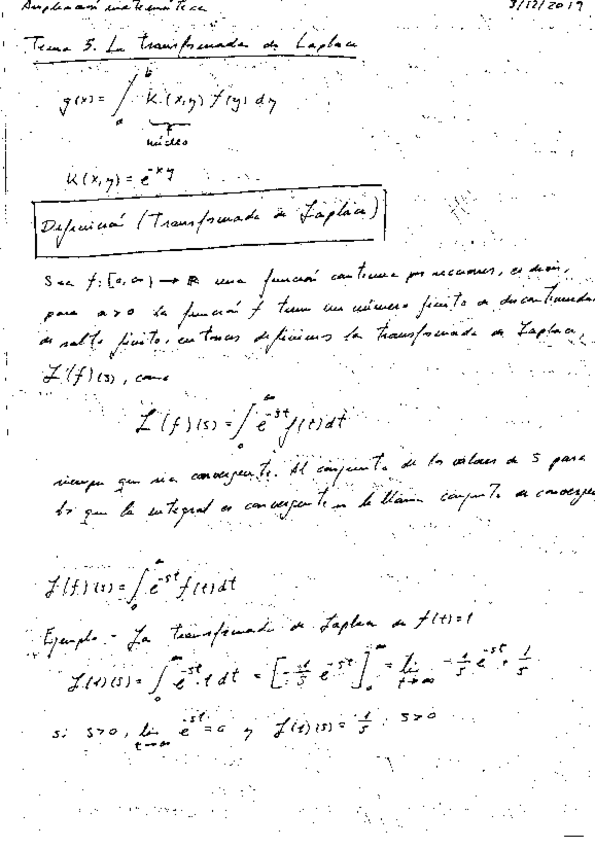 Ampliación matemática 3/12/2019
Tema 5. La transformada de Laplace
g(x) = ∫_a^b K(x,y) f(y) dy
núcleo
K(x,y) = e^{-xy}
Definición (Transformada de Laplace)
Sea f: [0,∞) → ℝ una función continua por secciones, es decir,
para a>0 la función f tiene un número finito de
de salto finito, entonces definimos la transformada de Laplace,
ℒ(f)(s), como
ℒ(f)(s) = ∫_0^∞ e^{-st} f(t) dt
siempre que sea convergente. Al conjunto de los valores de s para
lo que la integral es convergente se le llama conjunto de
ℒ(f)(s) = ∫_0^∞ e^{-st} f(t) dt
Ejemplo.- La transformada de Laplace de f(t)=1
ℒ(1)(s) = ∫_0^∞ e^{-st}·1 dt = [-1/s e^{-st}]_0^∞ = lim_{t→∞} -1/s e^{-st} + 1/s
si s>0, lim_{t→∞} e^{-st} = 0 y ℒ(1)(s) = 1/s ; s>0